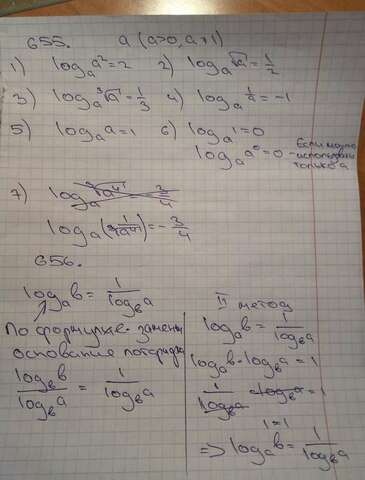 655. a (a>0, a≠1)
1) logₐ a² = 2 2) logₐ √a = 1/2
3) logₐ ³√a = 1/3 4) logₐ 1/a = -1
5) logₐ a = 1 6) logₐ 1 = 0
logₐ a⁰ = 0 - Если нужно
использовать
только a
7)
logₐ (1/⁴√a³) = -3/4
656.
logₐ b = 1/log_b a
По формуле замены
основание
log_b b / log_b a = 1/log_b a
II метод
logₐ b = 1/log_b a
logₐ b · log_b a = 1
1/log_b a · log_b a = 1
1 = 1
=> logₐ b = 1/log_b a